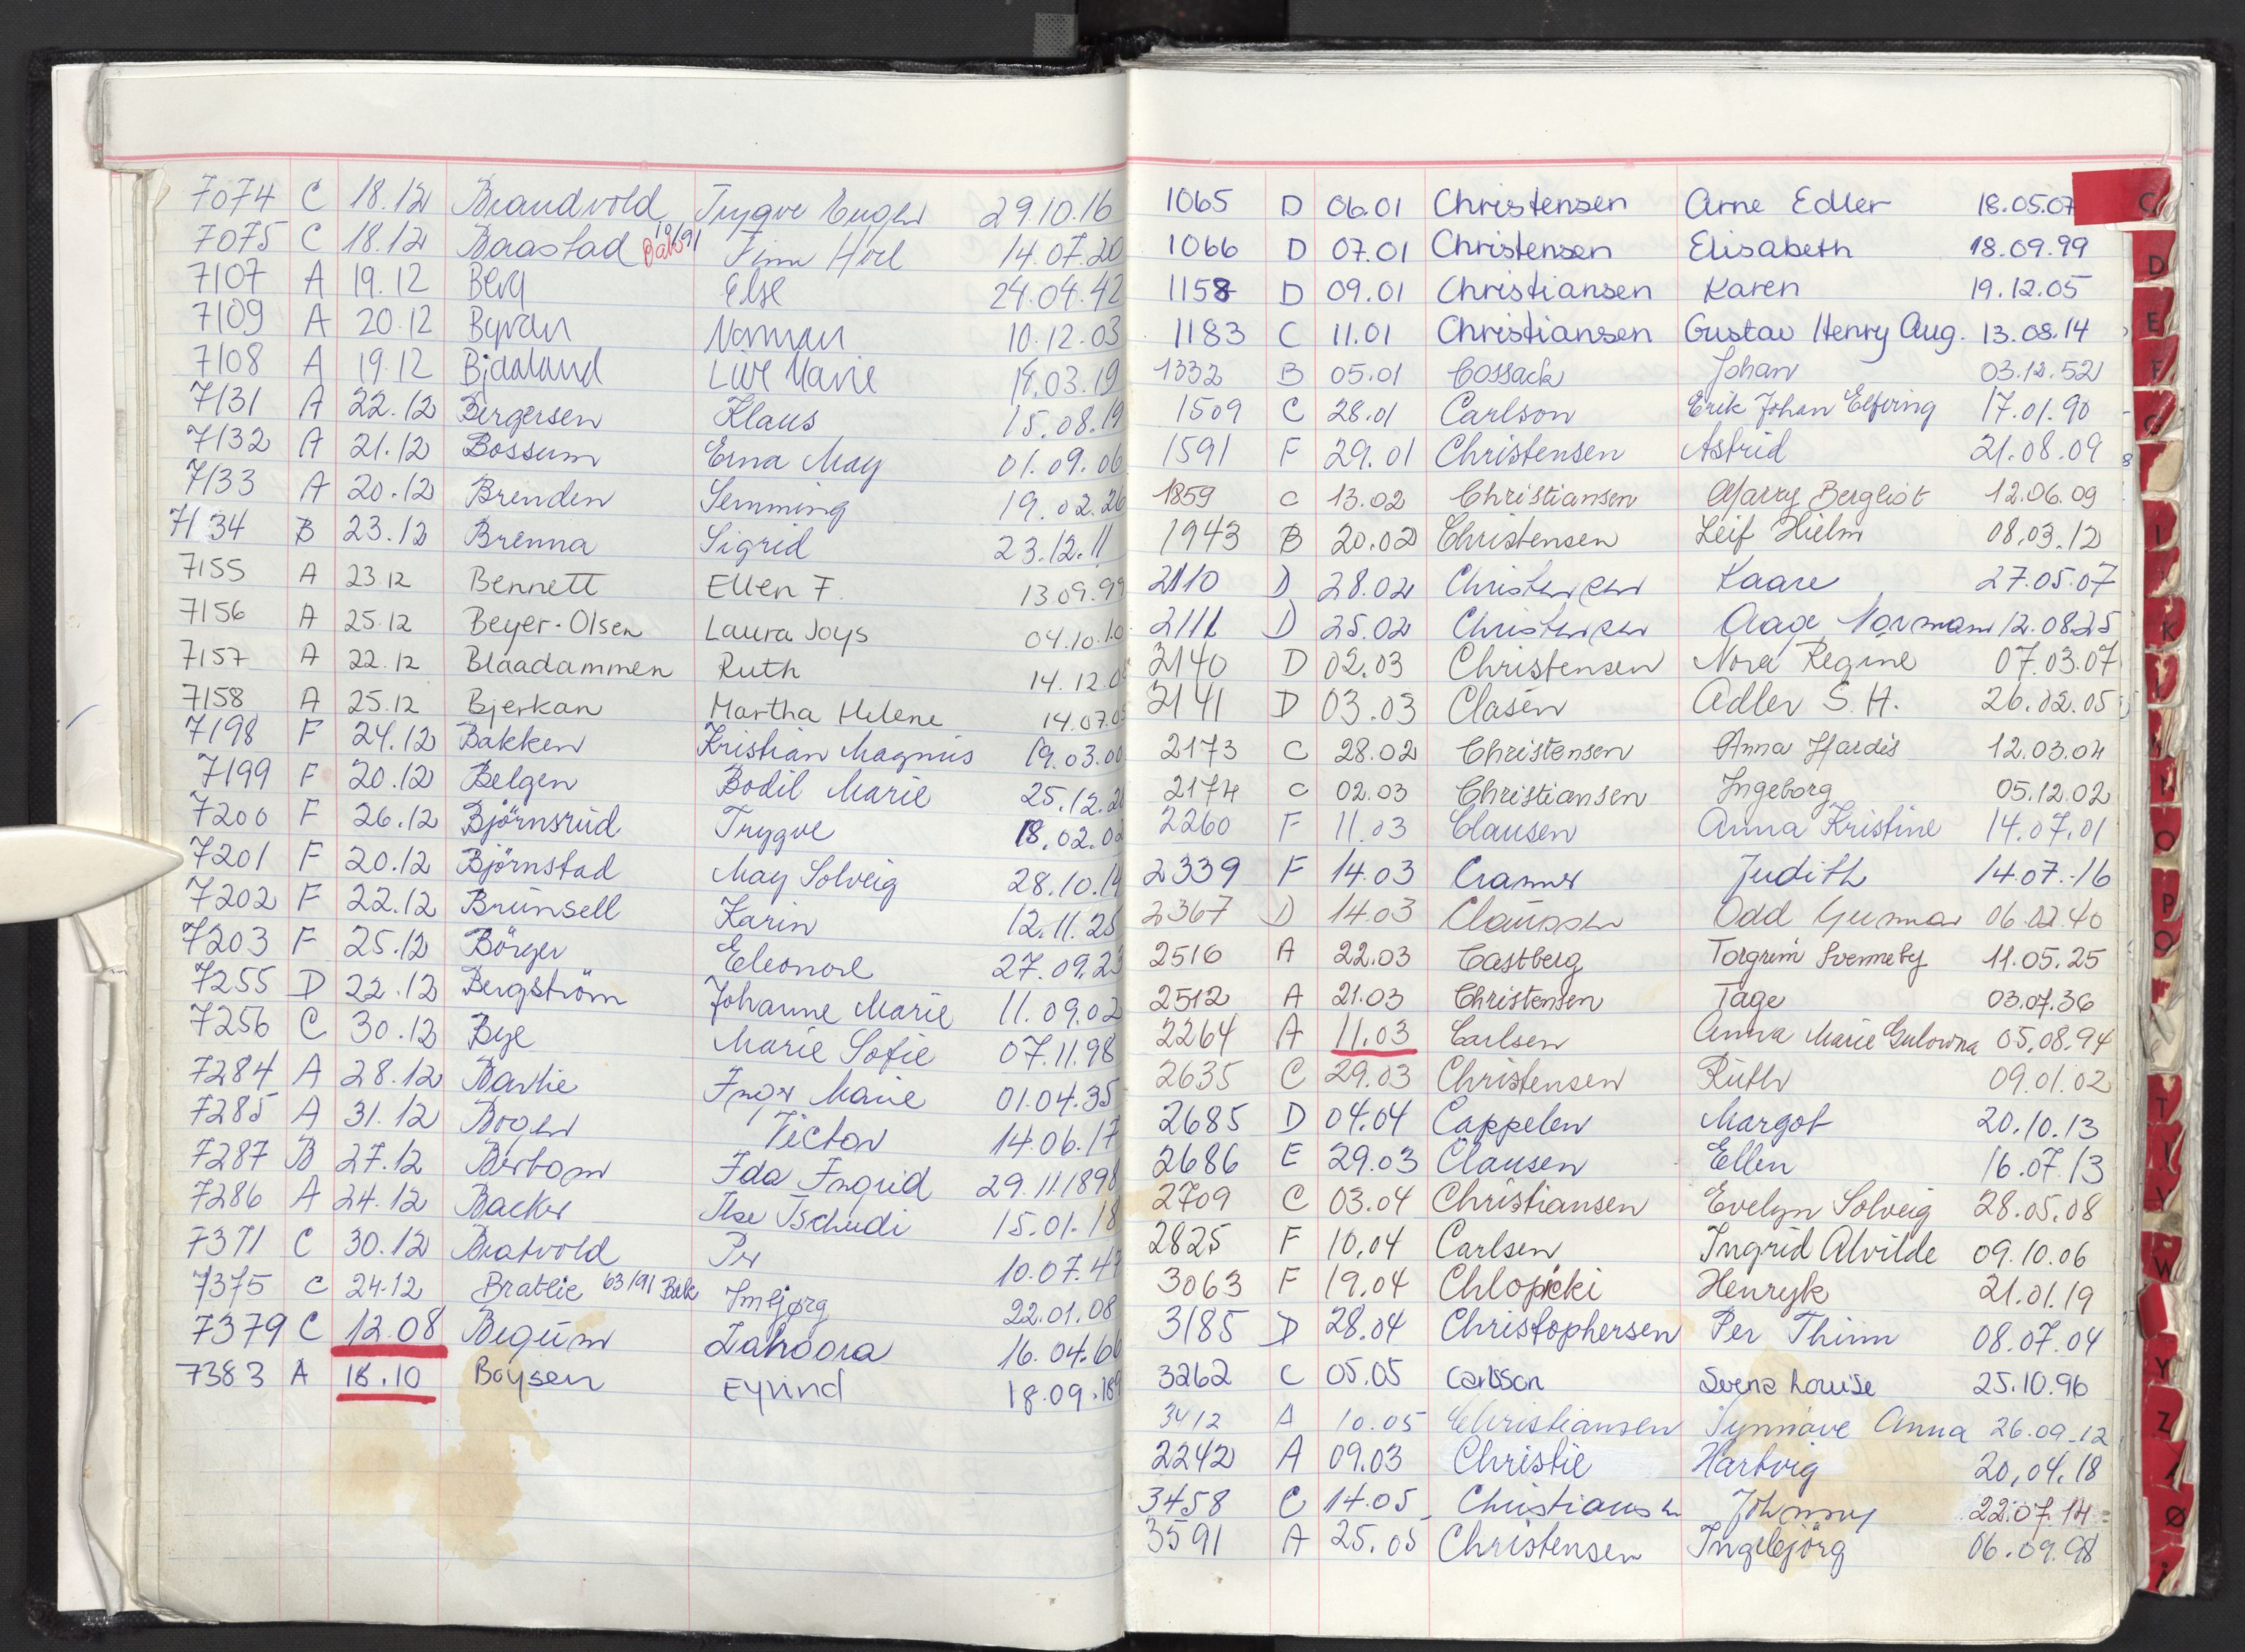 7074 C 18.12 Brandvold Trygve Eugen 29.10.16
7075 C 18.12 Baastad Finn Hoel 14.07.20
7107 A 19.12 Berg Else 24.04.42
7109 A 20.12 Byvan Norman 10.12.03
7108 A 19.12 Bjaaland Live Marie 14.03.19
7131 A 22.12 Bergersen Klaus 15.08.19
7132 A 21.12 Bossum Erna May 01.09.06
7133 A 20.12 Brenden Semming 19.02.26
7134 B 23.12 Brenna Sigrid 23.12.11
7155 A 23.12 Bennett Ellen F. 13.09.99
7156 A 25.12 Beyer-Olsen Laura Joys 04.10.10
7157 A 22.12 Blaadammen Ruth 14.12.0
7158 A 25.12 Bjerkan Martha Helene 14.07.0
7198 F 24.12 Bakken Kristian Magnus 19.03.00
7199 F 20.12 Belgen Bodil Marie 25.12.2
7200 F 26.12 Björnsrud Trygve 18.02.02
7201 F 20.12 Björnstad May Solveig 28.10.14
7202 F 22.12 Brunsell Karin 12.11.25
7203 F 25.12 Börger Eleonore 27.09.23
7255 D 22.12 Bergström Johanne Marie 11.09.02
7256 C 30.12 Bye Marie Sofie 07.11.98
7284 A 28.12 Barlie Inger Marie 01.04.35
7285 A 31.12 Boger Victor 14.06.17
7287 B 27.12 Berbom Ida Ingrid 29.11 1898
7286 A 24.12 Backer Ilse Tschudi 15.01.18
7371 C 30.12 Bratvold Per 10.07.47
7375 C 24.12 Bratlie 63/91 Bak Imbjørg 22.01.08
7379 C 12.08 Begum Zahoora 16.04.66
7383 A 18.10 Boysen Eyvind 18.09.189
C
1065 D 06.01 Christensen Arne Edler 18.05.07
1066 D 07.01 Christensen Elisabeth 18.09.99
1158 D 09.01 Christiansen Karen 19.12.05
1183 C 11.01 Christiansen Gustav Henry Aug. 13.08.14
1332 B 05.01 Cossack Johan 03.12.52
1509 C 28.01 Carlson Erik Johan Elfving 17.01.90
1591 F 29.01 Christensen Astrid 21.08.09
1859 C 13.02 Christiansen Marry Bergliot 12.06.09
1943 B 20.02 Christensen Leif Hielm 08.03.12
2110 D 28.02 Christensen Kaare 27.05.07
2111 D 25.02 Christensen Aage Normann 12.08.25
2140 D 02.03 Christensen Nora Regine 07.03.07
2141 D 03.03 Clasen Adler S. H. 26.02.05
2173 C 28.02 Christensen Anna Hjardis 12.03.04
2174 C 02.03 Christiansen Ingeborg 05.12.02
2260 F 11.03 Clausen Anna Kristine 14.07.01
2339 F 14.03 Cramer Judith 14.07.16
2367 D 14.03 Claussen Odd Gunnar 06.02.40
2516 A 22.03 Castberg Torgrim Svenneby 11.05.25
2512 A 21.03 Christensen Tage 03.07.36
2264 A 11.03 Carlsen Anna Marie Gulowna 05.08.94
2635 C 29.03 Christensen Ruth 09.01.02
2685 D 04.04 Cappelen Margot 20.10.13
2686 E 29.03 Clausen Ellen 16.07.13
2709 C 03.04 Christiansen Evelyn Solveig 28.05.08
2825 F 10.04 Carlsen Ingrid Alvilde 09.10.06
3063 F 19.04 Chlopicki Henryk 21.01.19
3185 D 28.04 Christophersen Per Thinn 08.07.04
3262 C 05.05 Carlsson Svena Louise 25.10.96
3412 A 10.05 Christiansen Synnøve Anna 26.09.12
2242 A 09.03 Christie Hartvig 20.04.18
3458 C 14.05 Christiansen Johnny 22.07.14
3591 A 25.05 Christensen Ingebjörg 06.09.98
D
E
F
G
I
K
N
O
P
Q
T
V
W
Y
Z
Ø